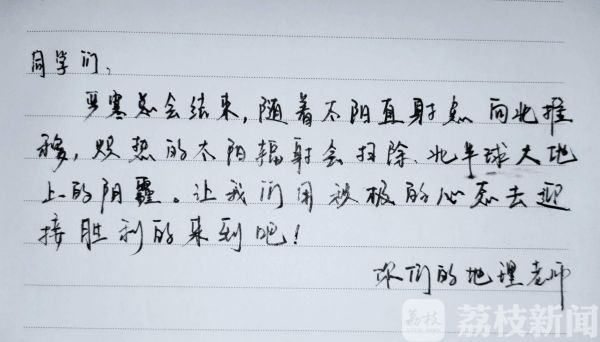 同学们，
严寒总会结束，随着太阳直射点向北推
移，炽热的太阳辐射会扫除北半球大地
上的阴霾。让我们用积极的心态去迎
接胜利的来到吧！
你们的地理老师
荔枝 荔枝新闻